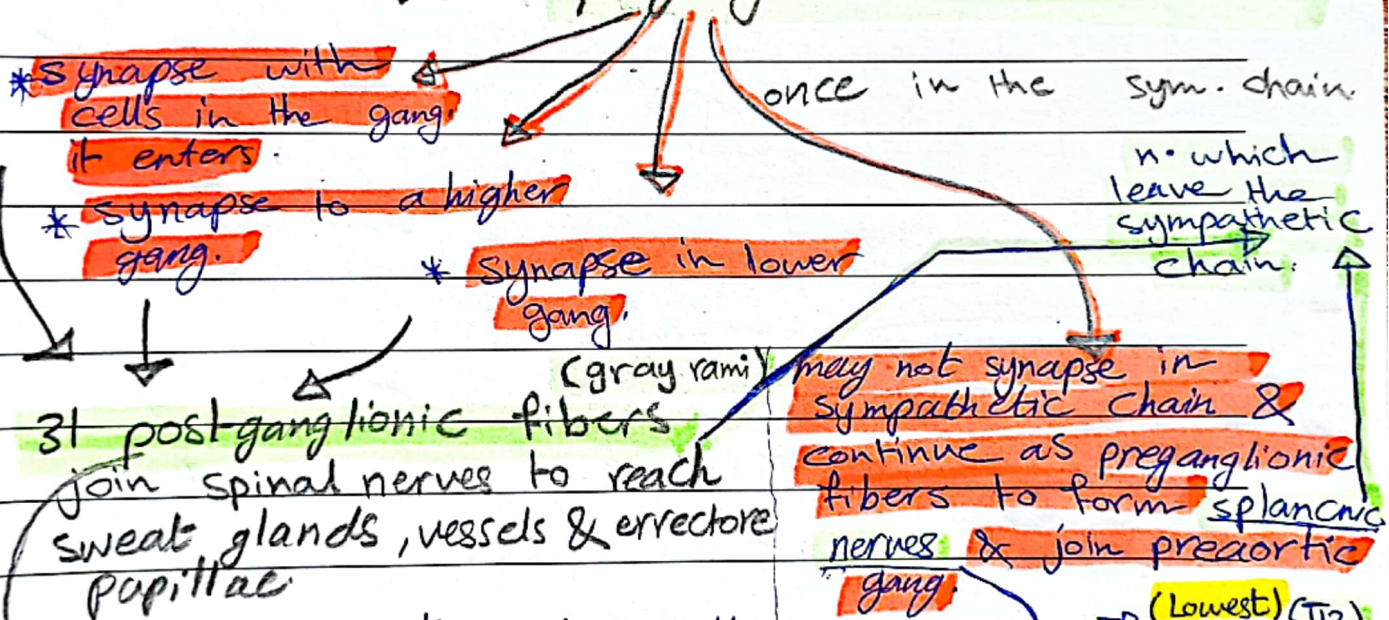 *synapse with
cells in the gang.
it enters.
* synapse to a higher
gang.
* synapse in lower
gang.
once in the sym. chain.
n. which
leave the
sympathetic
chain.
(gray rami)
31 post-ganglionic fibers
join spinal nerves to reach
sweat glands, vessels & errectore
papillae.
may not synapse in
sympathetic chain &
continue as preganglionic
fibers to form splancnic
nerves & join preaortic
gang.
(Lowest) (T12)